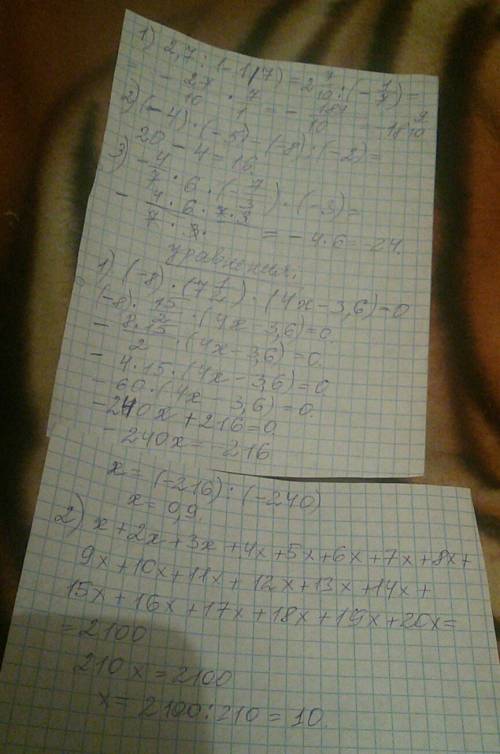 1) 2,7 : (-1/7) = 2 7/10 : (-1/7) =
= - 27/10 · 7/1 = - 189/10 = 18 9/10
2) (-4) · (-5) - (-8) : (-2) =
20 - 4 = 16.
3) - 4/7 · 6 · (- 7/3) · (-3) =
- 4 · 6 · 7 · 3 / 7 · 3 · = - 4 · 6 = - 24.
уравнения:
1) (-8) · (7 1/2) · (4x - 3,6) = 0
(-8) · 15/2 · (4x - 3,6) = 0.
- 8·15/2 · (4x - 3,6) = 0.
- 4·15 · (4x - 3,6) = 0
- 60 · (4x - 3,6) = 0.
- 240x + 216 = 0
- 240x = - 216
x = (-216) : (-240)
x = 0,9.
2) x + 2x + 3x + 4x + 5x + 6x + 7x + 8x +
9x + 10x + 11x + 12x + 13x + 14x +
15x + 16x + 17x + 18x + 19x + 20x =
= 2100
210x = 2100
x = 2100 : 210 = 10.